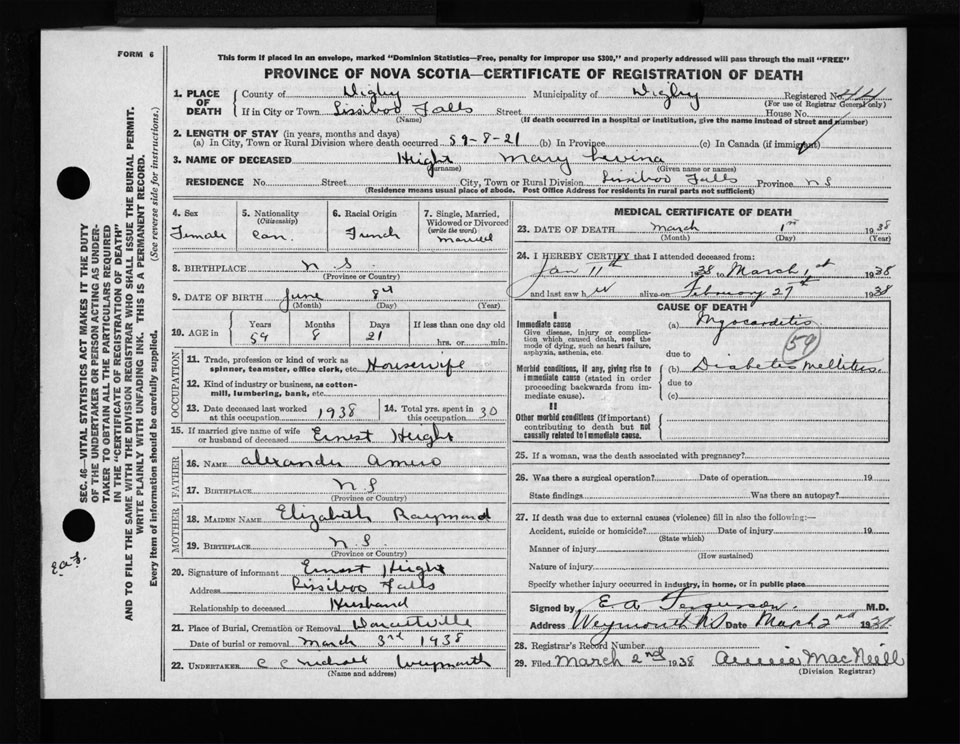 FORM 6
This form if placed in an envelope, marked "Dominion Statistics—Free, penalty for improper use $300," and properly addressed will pass through the mail "FREE"
PROVINCE OF NOVA SCOTIA—CERTIFICATE OF REGISTRATION OF DEATH
1. PLACE OF DEATH
County of Digby Municipality of Digby Registered No.
(For use of Registrar General only)
If in City or Town Sissiboo Falls Street House No.
(Name) (If death occurred in a hospital or institution, give the name instead of street and number)
2. LENGTH OF STAY (in years, months and days)
(a) In City, Town or Rural Division where death occurred 59-8-21 (b) In Province (c) In Canada (if immigrant)
3. NAME OF DECEASED Height Mary Levina
(Surname) (Given name or names)
RESIDENCE No. Street City, Town or Rural Division Sissiboo Falls Province NS
(Residence means usual place of abode. Post Office Address for residents in rural parts not sufficient)
4. Sex
Female
5. Nationality
(Citizenship)
Can.
6. Racial Origin
French
7. Single, Married, Widowed or Divorced
(write the word)
Married
8. BIRTHPLACE N.S.
(Province or Country)
9. DATE OF BIRTH June 8th
(Month) (Day) (Year)
10. AGE in Years Months Days If less than one day old
59 8 21 hrs. or min.
OCCUPATION
11. Trade, profession or kind of work as
spinner, teamster, office clerk, etc. Housewife
12. Kind of industry or business, as cotton-
mill, lumbering, bank, etc.
13. Date deceased last worked
at this occupation 1938
14. Total yrs. spent in
this occupation 30
15. If married give name of wife
or husband of deceased Ernest Height
FATHER
16. NAME Alexander Amero
17. BIRTHPLACE N S
(Province or Country)
MOTHER
18. MAIDEN NAME Elizabeth Raymond
19. BIRTHPLACE N.S.
(Province or Country)
20. Signature of informant Ernest Height
Address Sissiboo Falls
Relationship to deceased Husband
21. Place of Burial, Cremation or Removal
Date of burial or removal March 3rd 1938
22. UNDERTAKER Weymouth
(Name and address)
MEDICAL CERTIFICATE OF DEATH
23. DATE OF DEATH March 1st 1938
(Month) (Day) (Year)
24. I HEREBY CERTIFY that I attended deceased from:
Jan 11th 1938 to March 1st 1938
and last saw her alive on February 27th 1938
CAUSE OF DEATH
I
Immediate cause
Give disease, injury or complica-
tion which caused death, not the
mode of dying, such as heart failure,
asphyxia, asthenia, etc.
(a) Myocarditis
59
due to
Morbid conditions, if any, giving rise to
immediate cause (stated in order
proceeding backwards from im-
mediate cause).
(b) Diabetes Mellitus
due to
(c)
II
Other morbid conditions (if important)
contributing to death but not
causally related to immediate cause.
25. If a woman, was the death associated with pregnancy?
26. Was there a surgical operation? Date of operation 19
State findings Was there an autopsy?
27. If death was due to external causes (violence) fill in also the following:—
Accident, suicide or homicide? Date of injury 19
(State which)
Manner of injury
(How sustained)
Nature of injury
Specify whether injury occurred in industry, in home, or in public place
Signed by E. A. Ferguson M.D.
Address Weymouth NS Date March 2nd 1938
28. Registrar's Record Number
29. Filed March 2nd 1938 Annie MacNeill
(Division Registrar)
SEC. 46—VITAL STATISTICS ACT MAKES IT THE DUTY
OF THE UNDERTAKER OR PERSON ACTING AS UNDER-
TAKER TO OBTAIN ALL THE PARTICULARS REQUIRED
IN THE "CERTIFICATE OF REGISTRATION OF DEATH"
AND TO FILE THE SAME WITH THE DIVISION REGISTRAR WHO SHALL ISSUE THE BURIAL PERMIT.
WRITE PLAINLY WITH UNFADING INK. THIS IS A PERMANENT RECORD.
Every item of information should be carefully supplied. (See reverse side for instructions.)